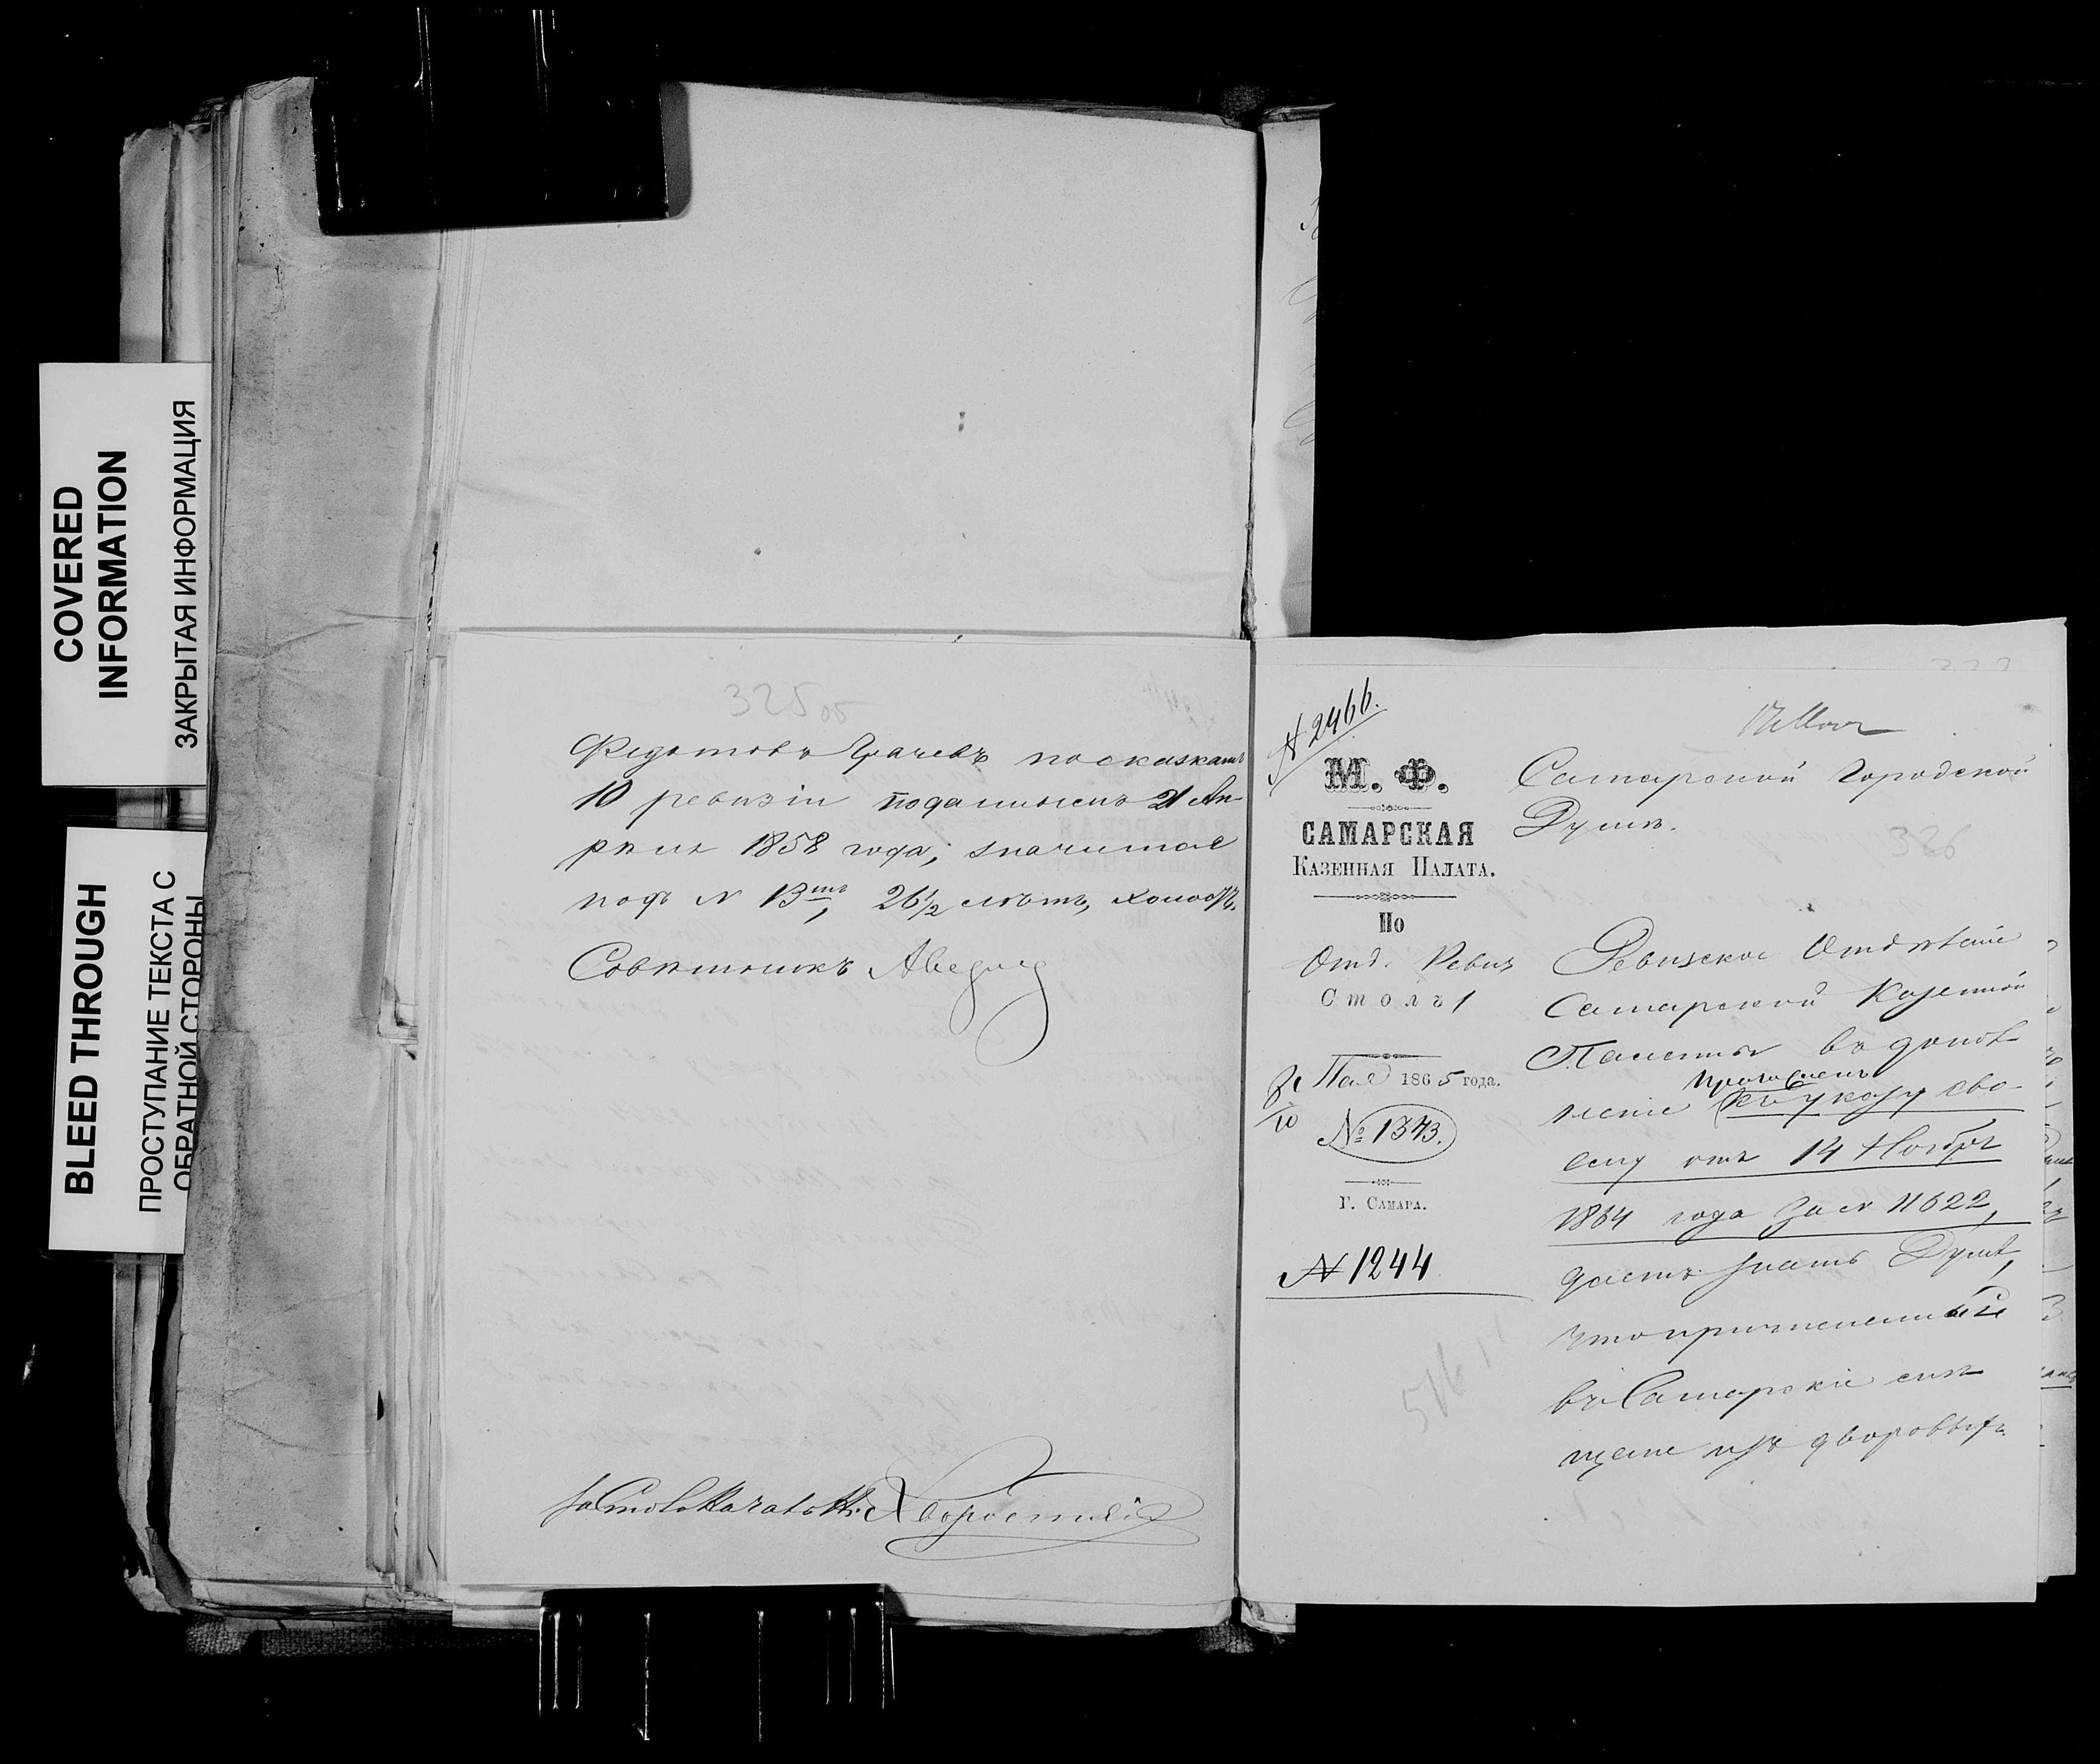 COVERED
INFORMATION
ЗАКРЫТАЯ ИНФОРМАЦИЯ
BLEED THROUGH
ПРОСТУПАНИЕ ТЕКСТА С
ОБРАТНОЙ СТОРОНЫ
325 об
Федотовъ Грачевъ по сказкамъ
10 ревизіи поданнымъ 21 Ап-
рѣля 1858 года, значится
подъ № 13мъ, 26½ лѣтъ, холостъ.
Совѣтникъ
За Столоначальника
№ 2466.
М. Ф.
САМАРСКАЯ
КАЗЕННАЯ ПАЛАТА.
По
Отд. Ревиз
Столъ 1
Мая 1865 года.
10
№ 1373.
Г. САМАРА.
№ 1244
Самарской Городской
Думѣ.
326
Ревизское Отдѣленіе
Самарской Казенной
Палаты въ допол-
неніе къ указу сво-
ему отъ 14 Ноября
1864 года за № 11622,
даетъ знать Думѣ,
что причисленный
въ Самарскіе мѣ-
щане изъ дворовыхъ